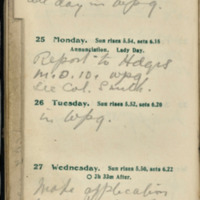 all day in wpg.
25 Monday. Sun rises 5.54, sets 6.18
Annunciation. Lady Day.
Report to Hdqrs
M.D. 10. wpg
See Col.
26 Tuesday. Sun rises 5.52, sets 6.20
in wpg.
27 Wednesday. Sun rises 5.50, sets 6.22
3h 33m After.
Make application